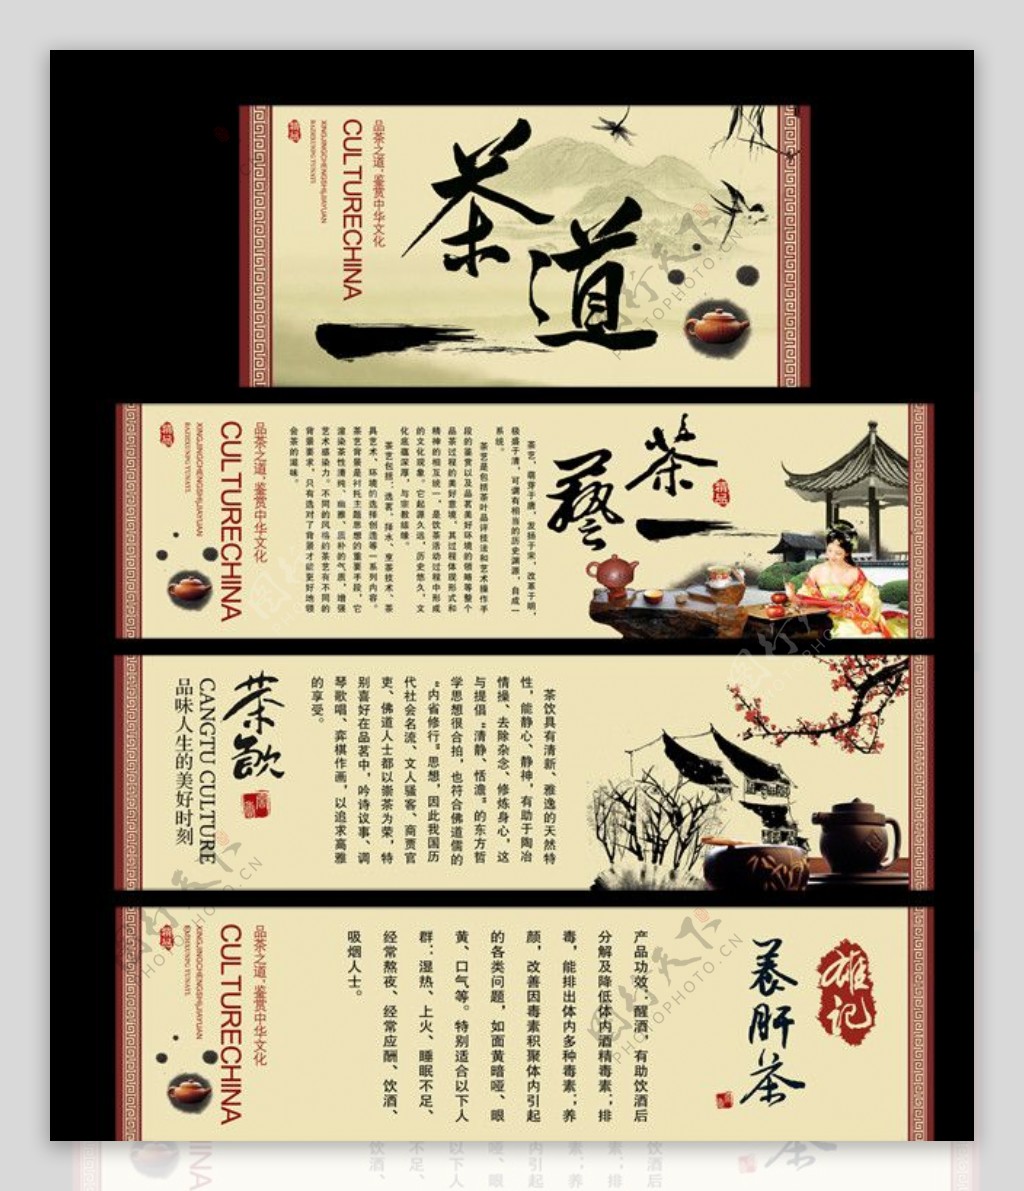 茶道
品茶之道,鉴赏中华文化
CULTURECHINA
XINGJINGCHENGSHIJIAYUAN
茶藝
茶艺,萌芽于唐,发扬于宋,改革于明,
极盛于清,可谓有相当的历史渊源,自成一
系统。
茶艺是包括茶叶品评技法和艺术操作手
段的鉴赏以及品茗美好环境的领略等整个
品茶过程的美好意境,其过程体现形式和
精神的相互统一,是饮茶活动过程中形成
的文化现象。它起源久远,历史悠久,文
化底蕴深厚,与宗教结缘。
茶艺包括:选茗、择水、烹茶技术、茶
具艺术、环境的选择创造等一系列内容。
茶艺背景是衬托主题思想的重要手段,它
渲染茶性清纯、幽雅、质朴的气质,增强
艺术感染力。不同的风格的茶艺有不同的
背景要求,只有选对了背景才能更好地领
会茶的滋味。
品茶之道,鉴赏中华文化
CULTURECHINA
XINGJINGCHENGSHIJIAYUAN
茶饮具有清新、雅逸的天然特
性,能静心、静神,有助于陶冶
情操、去除杂念、修炼身心,这
与提倡“清静、恬澹”的东方哲
学思想很合拍,也符合佛道儒的
“内省修行”思想,因此我国历
代社会名流、文人骚客、商贾官
吏、佛道人士都以崇茶为荣,特
别喜好在品茗中,吟诗议事、调
琴歌唱、弈棋作画,以追求高雅
的享受。
茶飲
CANGTU CULTURE
品味人生的美好时刻
雄记
养肝茶
产品功效:醒酒,有助饮酒后
分解及降低体内酒精毒素;排
毒,能排出体内多种毒素;养
颜,改善因毒素积聚体内引起
的各类问题,如面黄暗哑、眼
黄、口气等。特别适合以下人
群:湿热、上火、睡眠不足、
经常熬夜、经常应酬、饮酒、
吸烟人士。
品茶之道,鉴赏中华文化
CULTURECHINA
XINGJINGCHENGSHIJIAYUAN